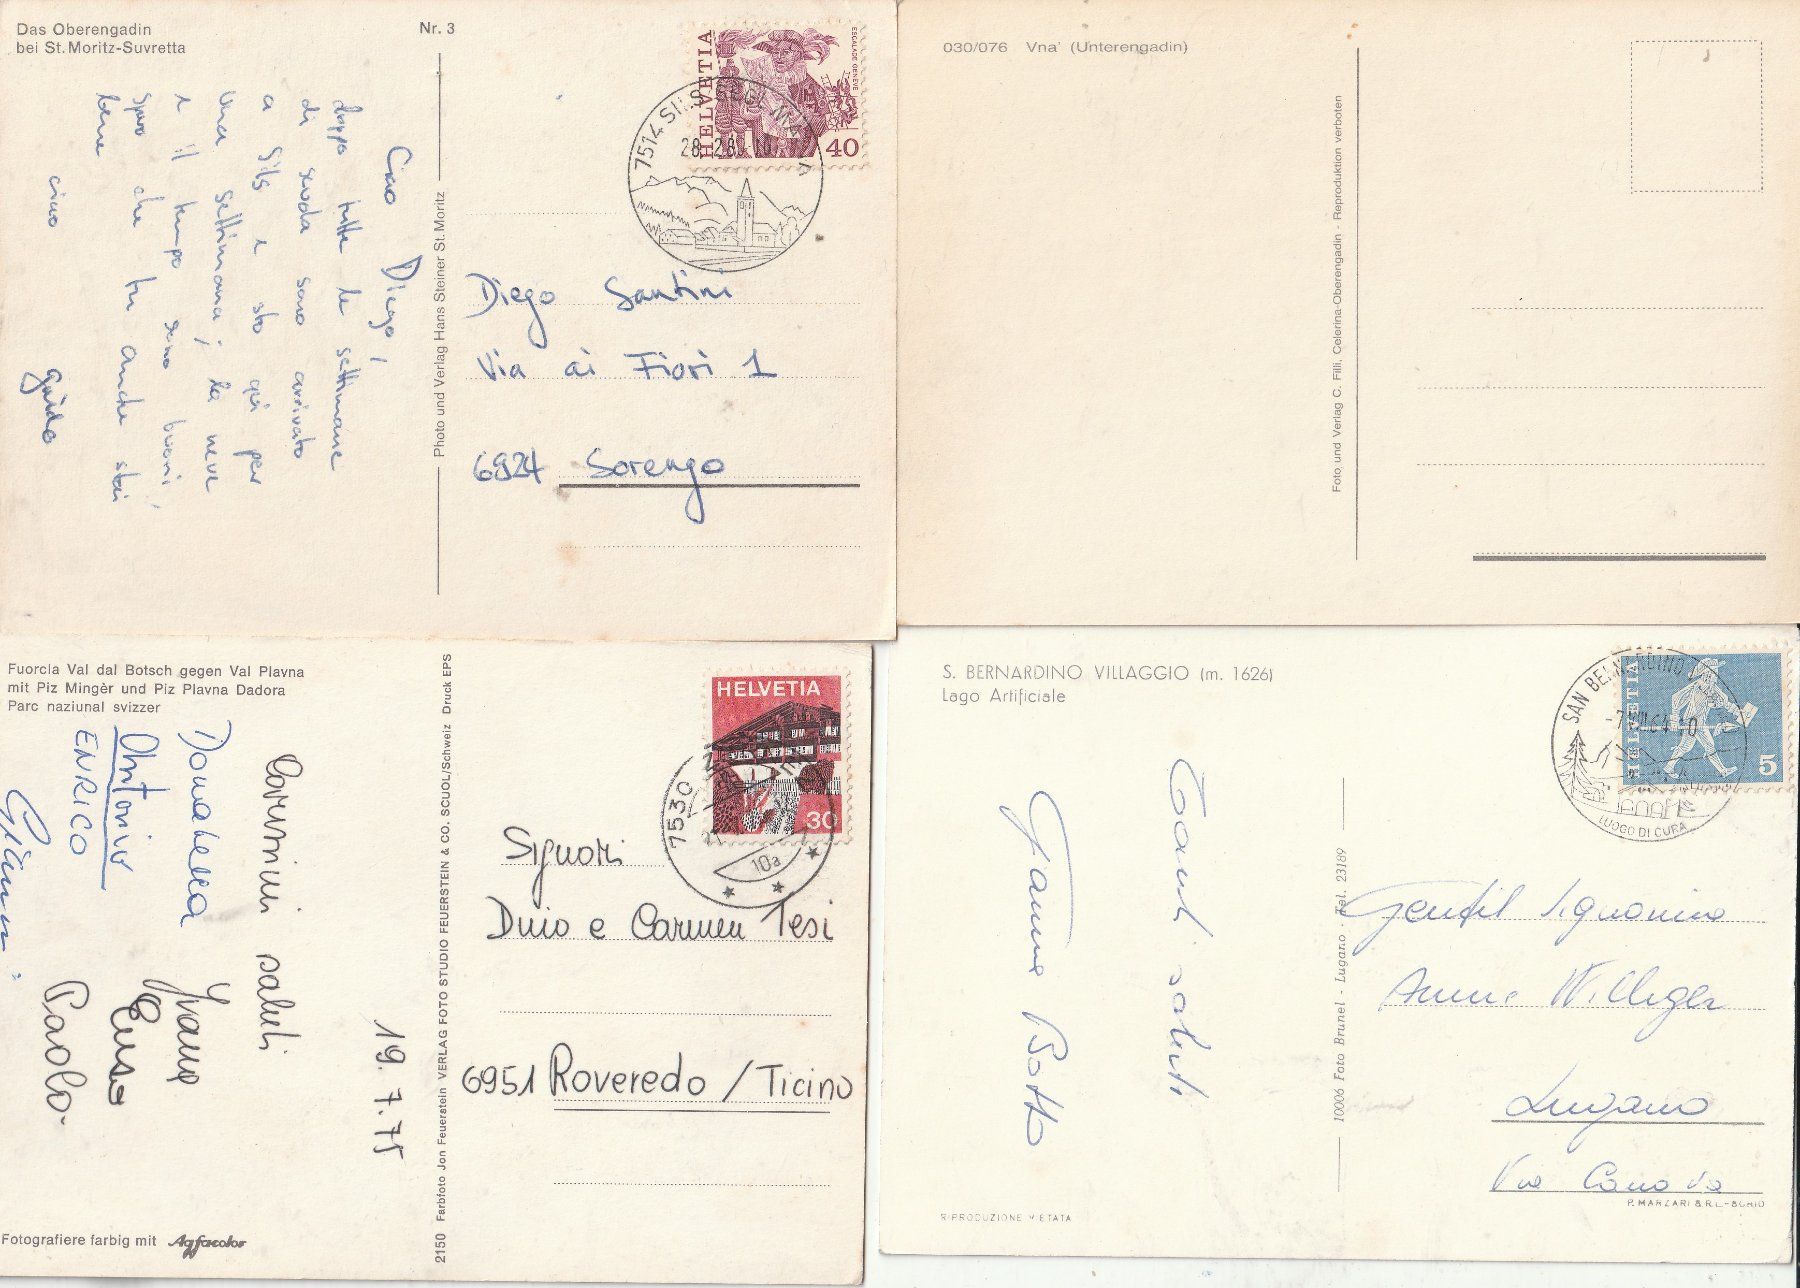 Das Oberengadin
bei St. Moritz-Suvretta
Nr. 3
Ciao Diego,
doppo tutte le settimane
di scuola sono arrivato
a Sils e sto qui per
una settimana; la neve
e il tempo sono buoni,
spero che tu anche stai
bene
ciao guido
Photo und Verlag Hans Steiner St. Moritz
HELVETIA
ESCALADE GENÈVE
40
7514 SILS/SEGL MARIA
28.2.80
Diego Santini
Via ai Fiori 1
6924 Sorengo
030/076 Vna' (Unterengadin)
Foto und Verlag C. Filli, Celerina-Oberengadin - Reproduktion verboten
Fuorcla Val dal Botsch gegen Val Plavna
mit Piz Mingèr und Piz Plavna Dadora
Parc naziunal svizzer
19.7.75
Carissimi saluti
Donatella
Antonio
ENRICO
Paolo
Fotografiere farbig mit Agfacolor
2150 Farbfoto Jon Feuerstein VERLAG FOTO STUDIO FEUERSTEIN & CO. SCUOL/Schweiz Druck EPS
HELVETIA
30
7530 ZERNEZ
10a
Signori
Duio e Carmen Tesi
6951 Roveredo / Ticino
S. BERNARDINO VILLAGGIO (m. 1626)
Lago Artificiale
Tanti saluti
Gianna Botto
RIPRODUZIONE VIETATA
10006 Foto Brunel - Lugano - Tel. 23189
HELVETIA
5
SAN BERNARDINO
-7.VIII.64-10
LUOGO DI CURA
Gentil signorina
Anna Williger
Lugano
Via Canova
P. MARZARI S.R.L.-SCHIO